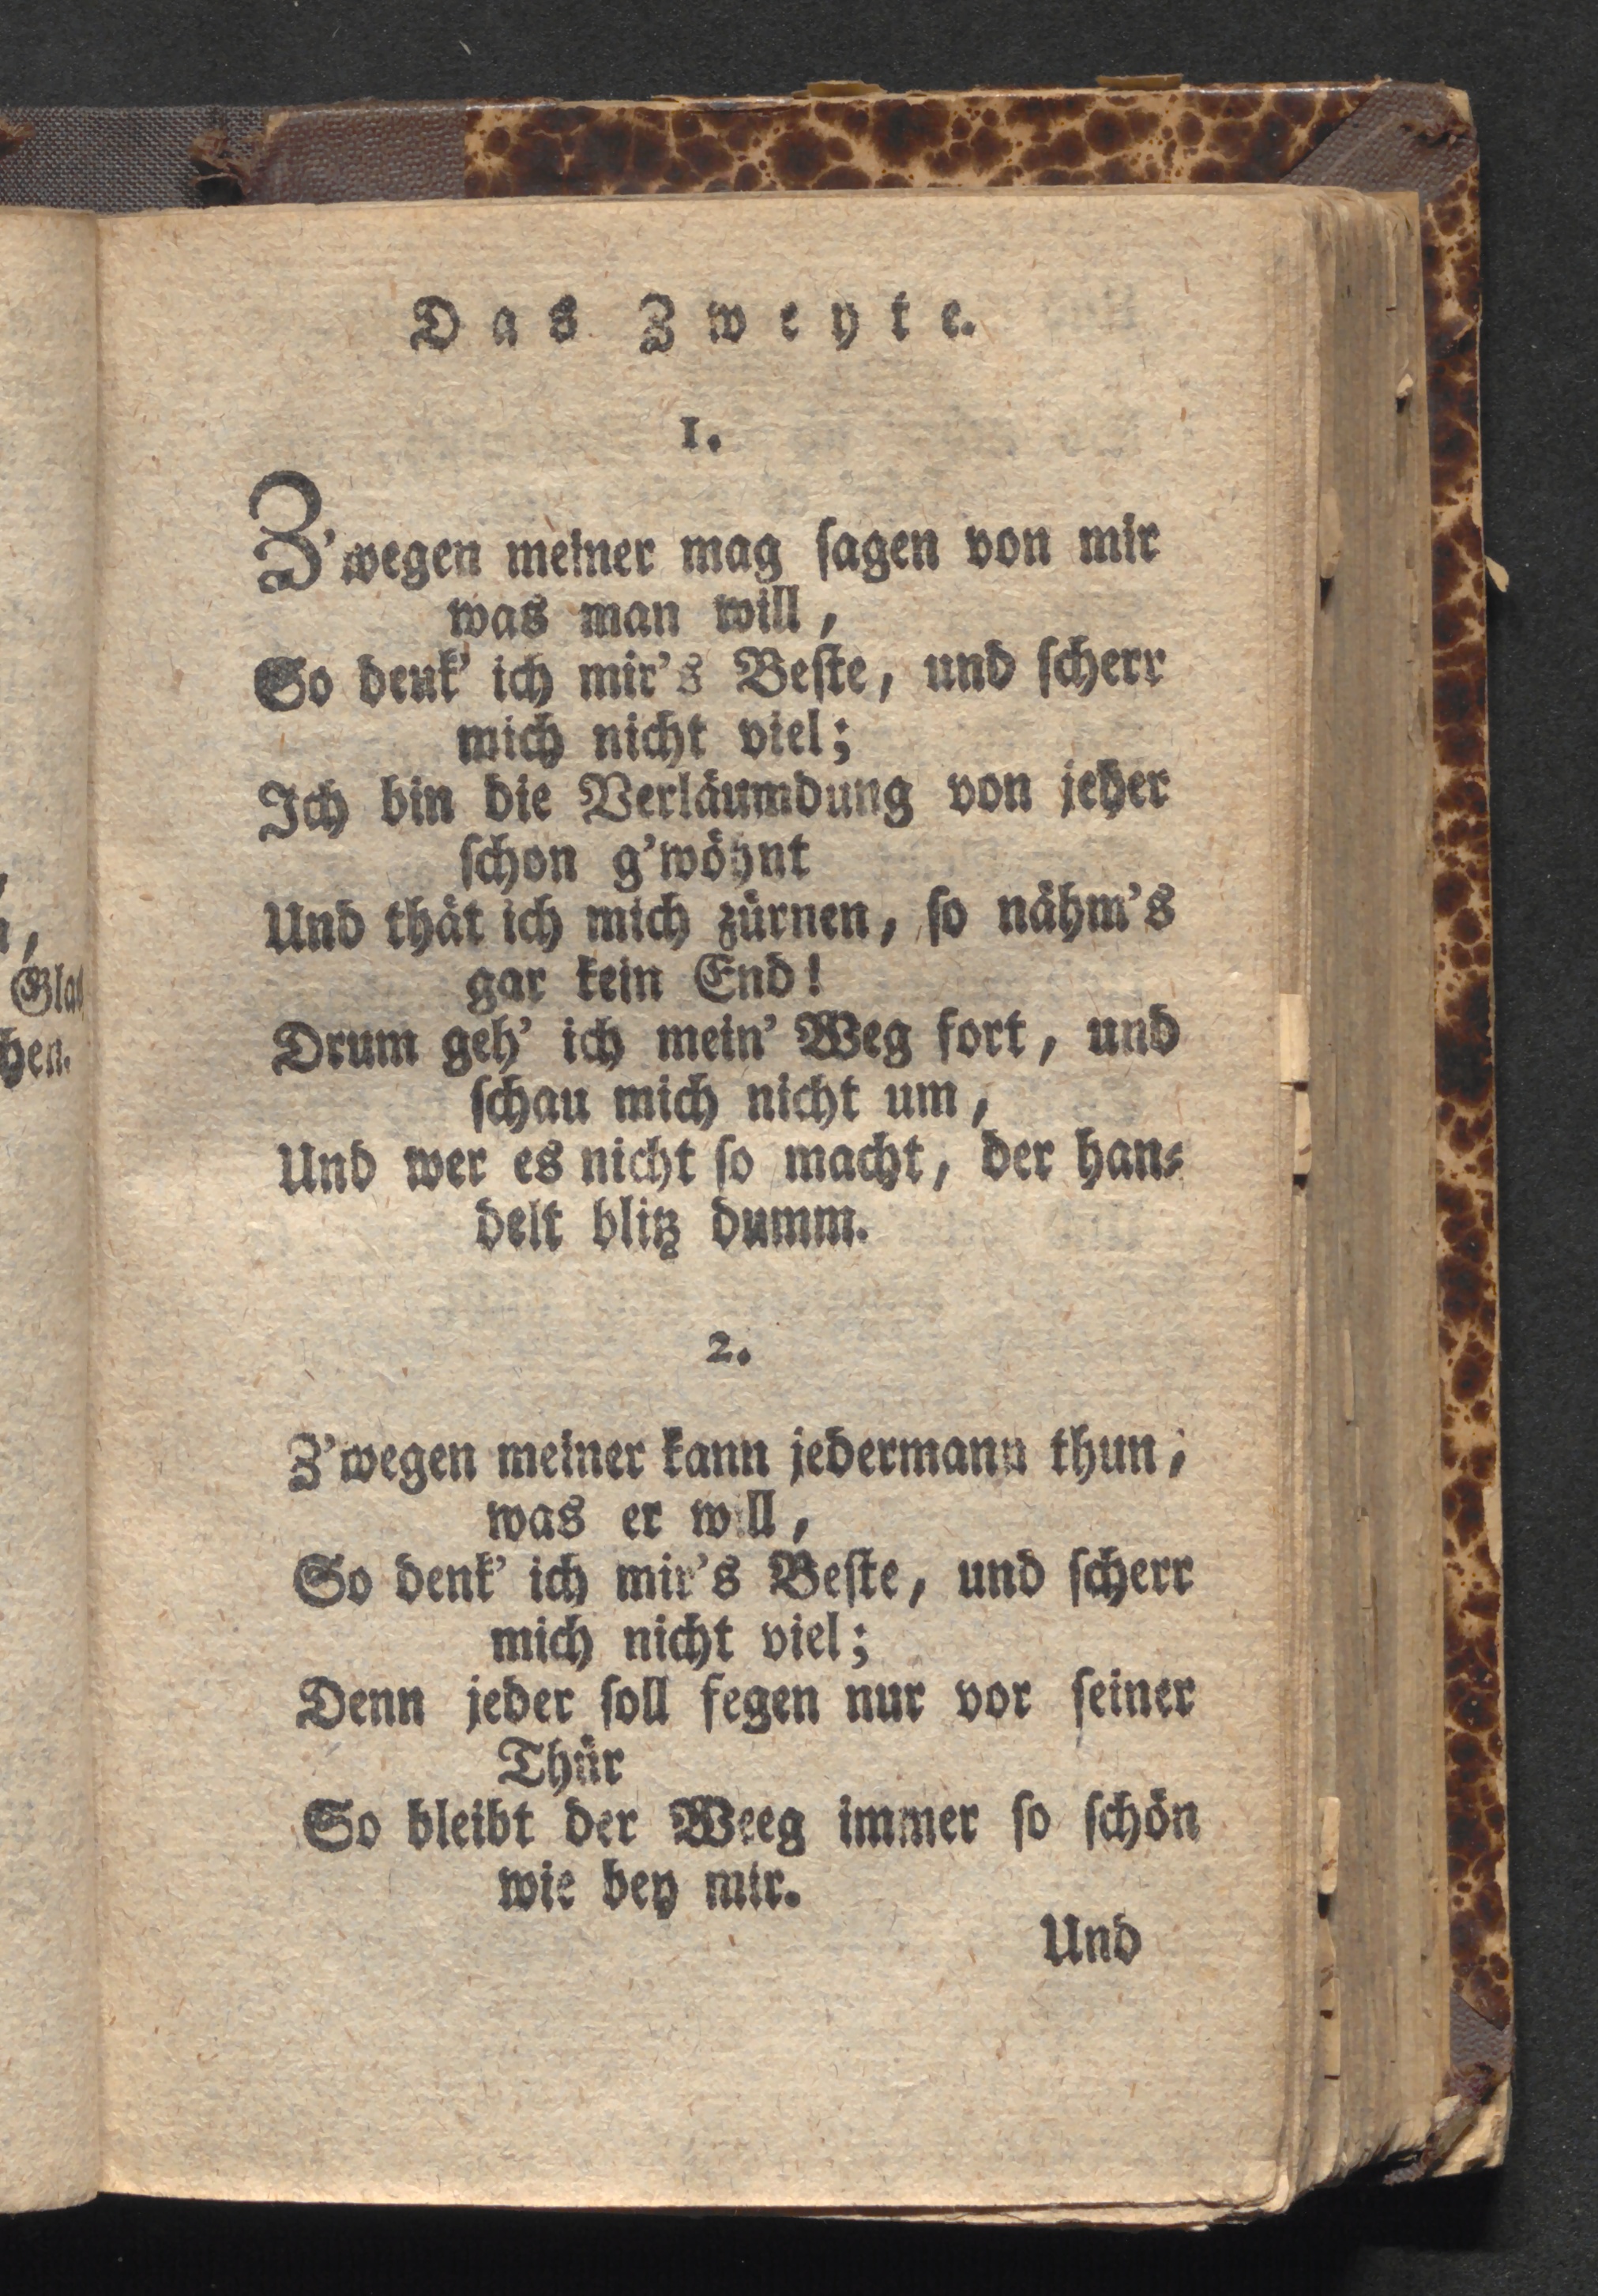 Das Zweyte.
1.
Z'wegen meiner mag ſagen von mir
was man will,
So denk' ich mir's Beſte, und ſcherr
mich nicht viel;
Ich bin die Verläumdung von jeher
ſchon g'wöhnt
Und thät ich mich zürnen, ſo nähm's
gar kein End!
Drum geh' ich mein' Weg fort, und
ſchau mich nicht um,
Und wer es nicht ſo macht, der han⸗
delt blitz dumm.
2.
Z'wegen meiner kann jedermann thun,
was er will,
So denk' ich mir's Beſte, und ſcherr
mich nicht viel;
Denn jeder ſoll fegen nur vor ſeiner
Thür
So bleibt der Weeg immer ſo ſchön
wie bey mir.
Und